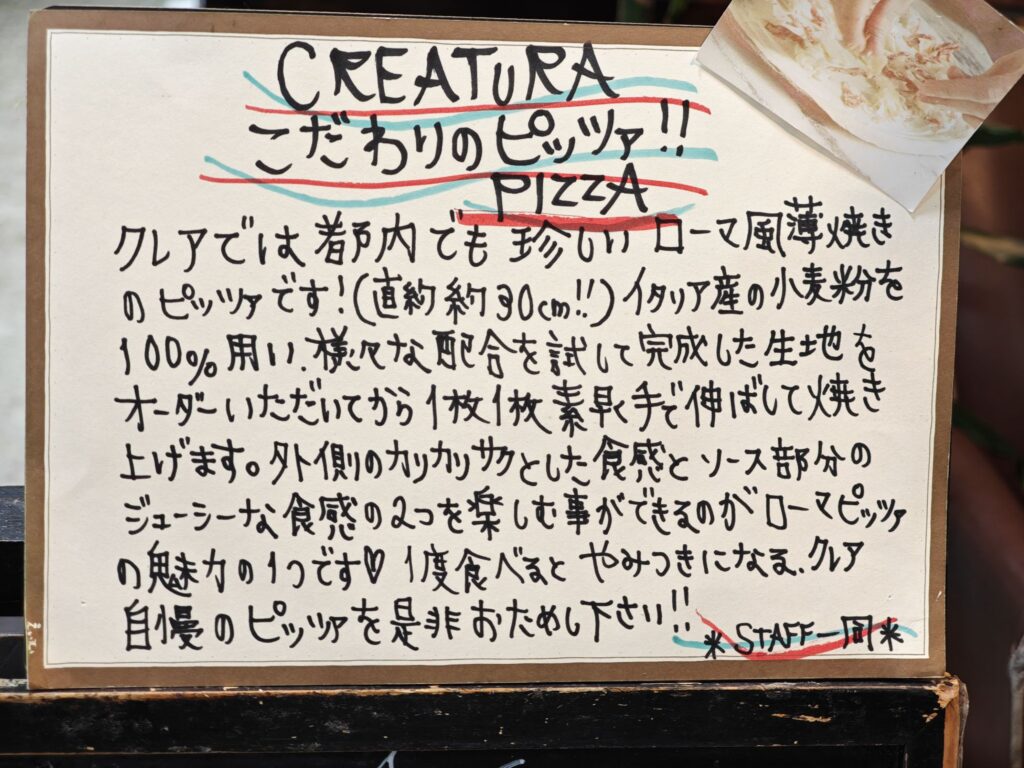 CREATURA
こだわりのピッツァ!!
PIZZA
クレアでは都内でも珍しいローマ風薄焼き
のピッツァです!(直約約30cm!!)イタリア産の小麦粉を
100%用い、様々な配合を試して完成した生地を
オーダーいただいてから1枚1枚素早く手で伸ばして焼き
上げます。外側のカリカリサクとした食感とソース部分の
ジューシーな食感の2つを楽しむ事ができるのがローマピッツァ
の魅力の1つです♡ 1度食べるとやみつきになる、クレア
自慢のピッツァを是非おためし下さい!!
*STAFF一同*